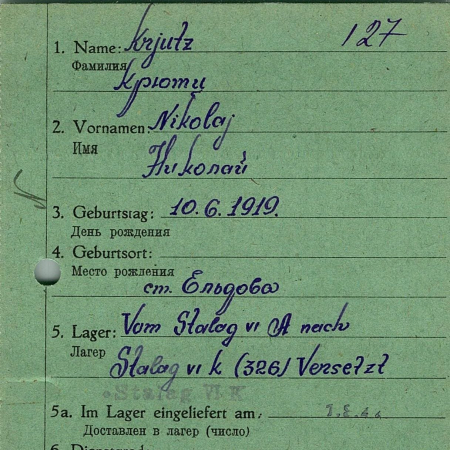 127
1. Name: Krjutz
Фамилия
Крютц
2. Vornamen: Nikolaj
Имя
Николай
3. Geburtstag: 10.6.1919.
День рождения
4. Geburtsort:
Место рождения
ст. Ельдова
5. Lager: Vom Stalag VI A nach
Лагер
Stalag VI K (326) Versetzt
Stalag VI K
5a. Im Lager eingeliefert am:
Доставлен в лагер (число)
6. Dienstgrad: